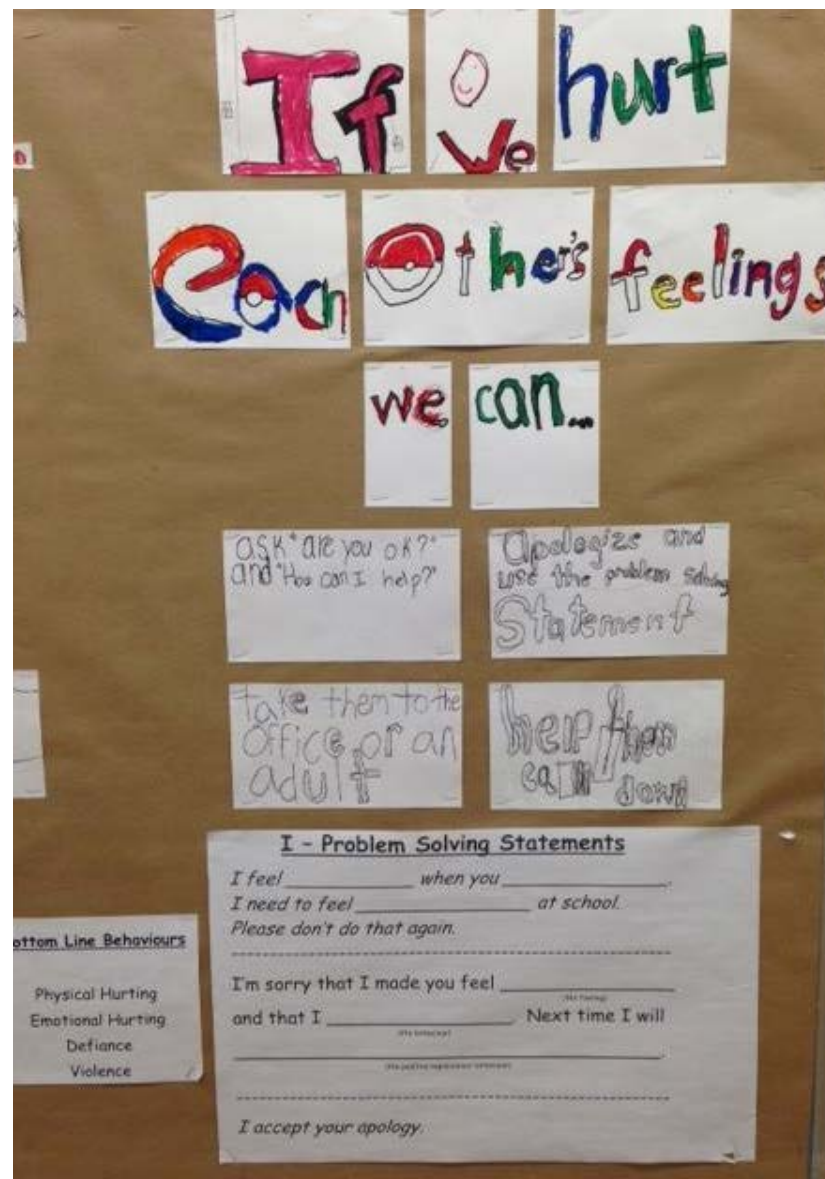 If we hurt
each other's feelings
we can...
ask "are you ok?"
and "How can I help?"
Apologize and
use the problem solving
Statement
take them to the
office or an
adult
help them
calm down
I - Problem Solving Statements
I feel ____________ when you ________________.
I need to feel ________________ at school.
Please don't do that again.
I'm sorry that I made you feel ________________
(the feeling)
and that I ________________. Next time I will
(the behaviour)
________________________________________.
I accept your apology.
ottom Line Behaviours
Physical Hurting
Emotional Hurting
Defiance
Violence